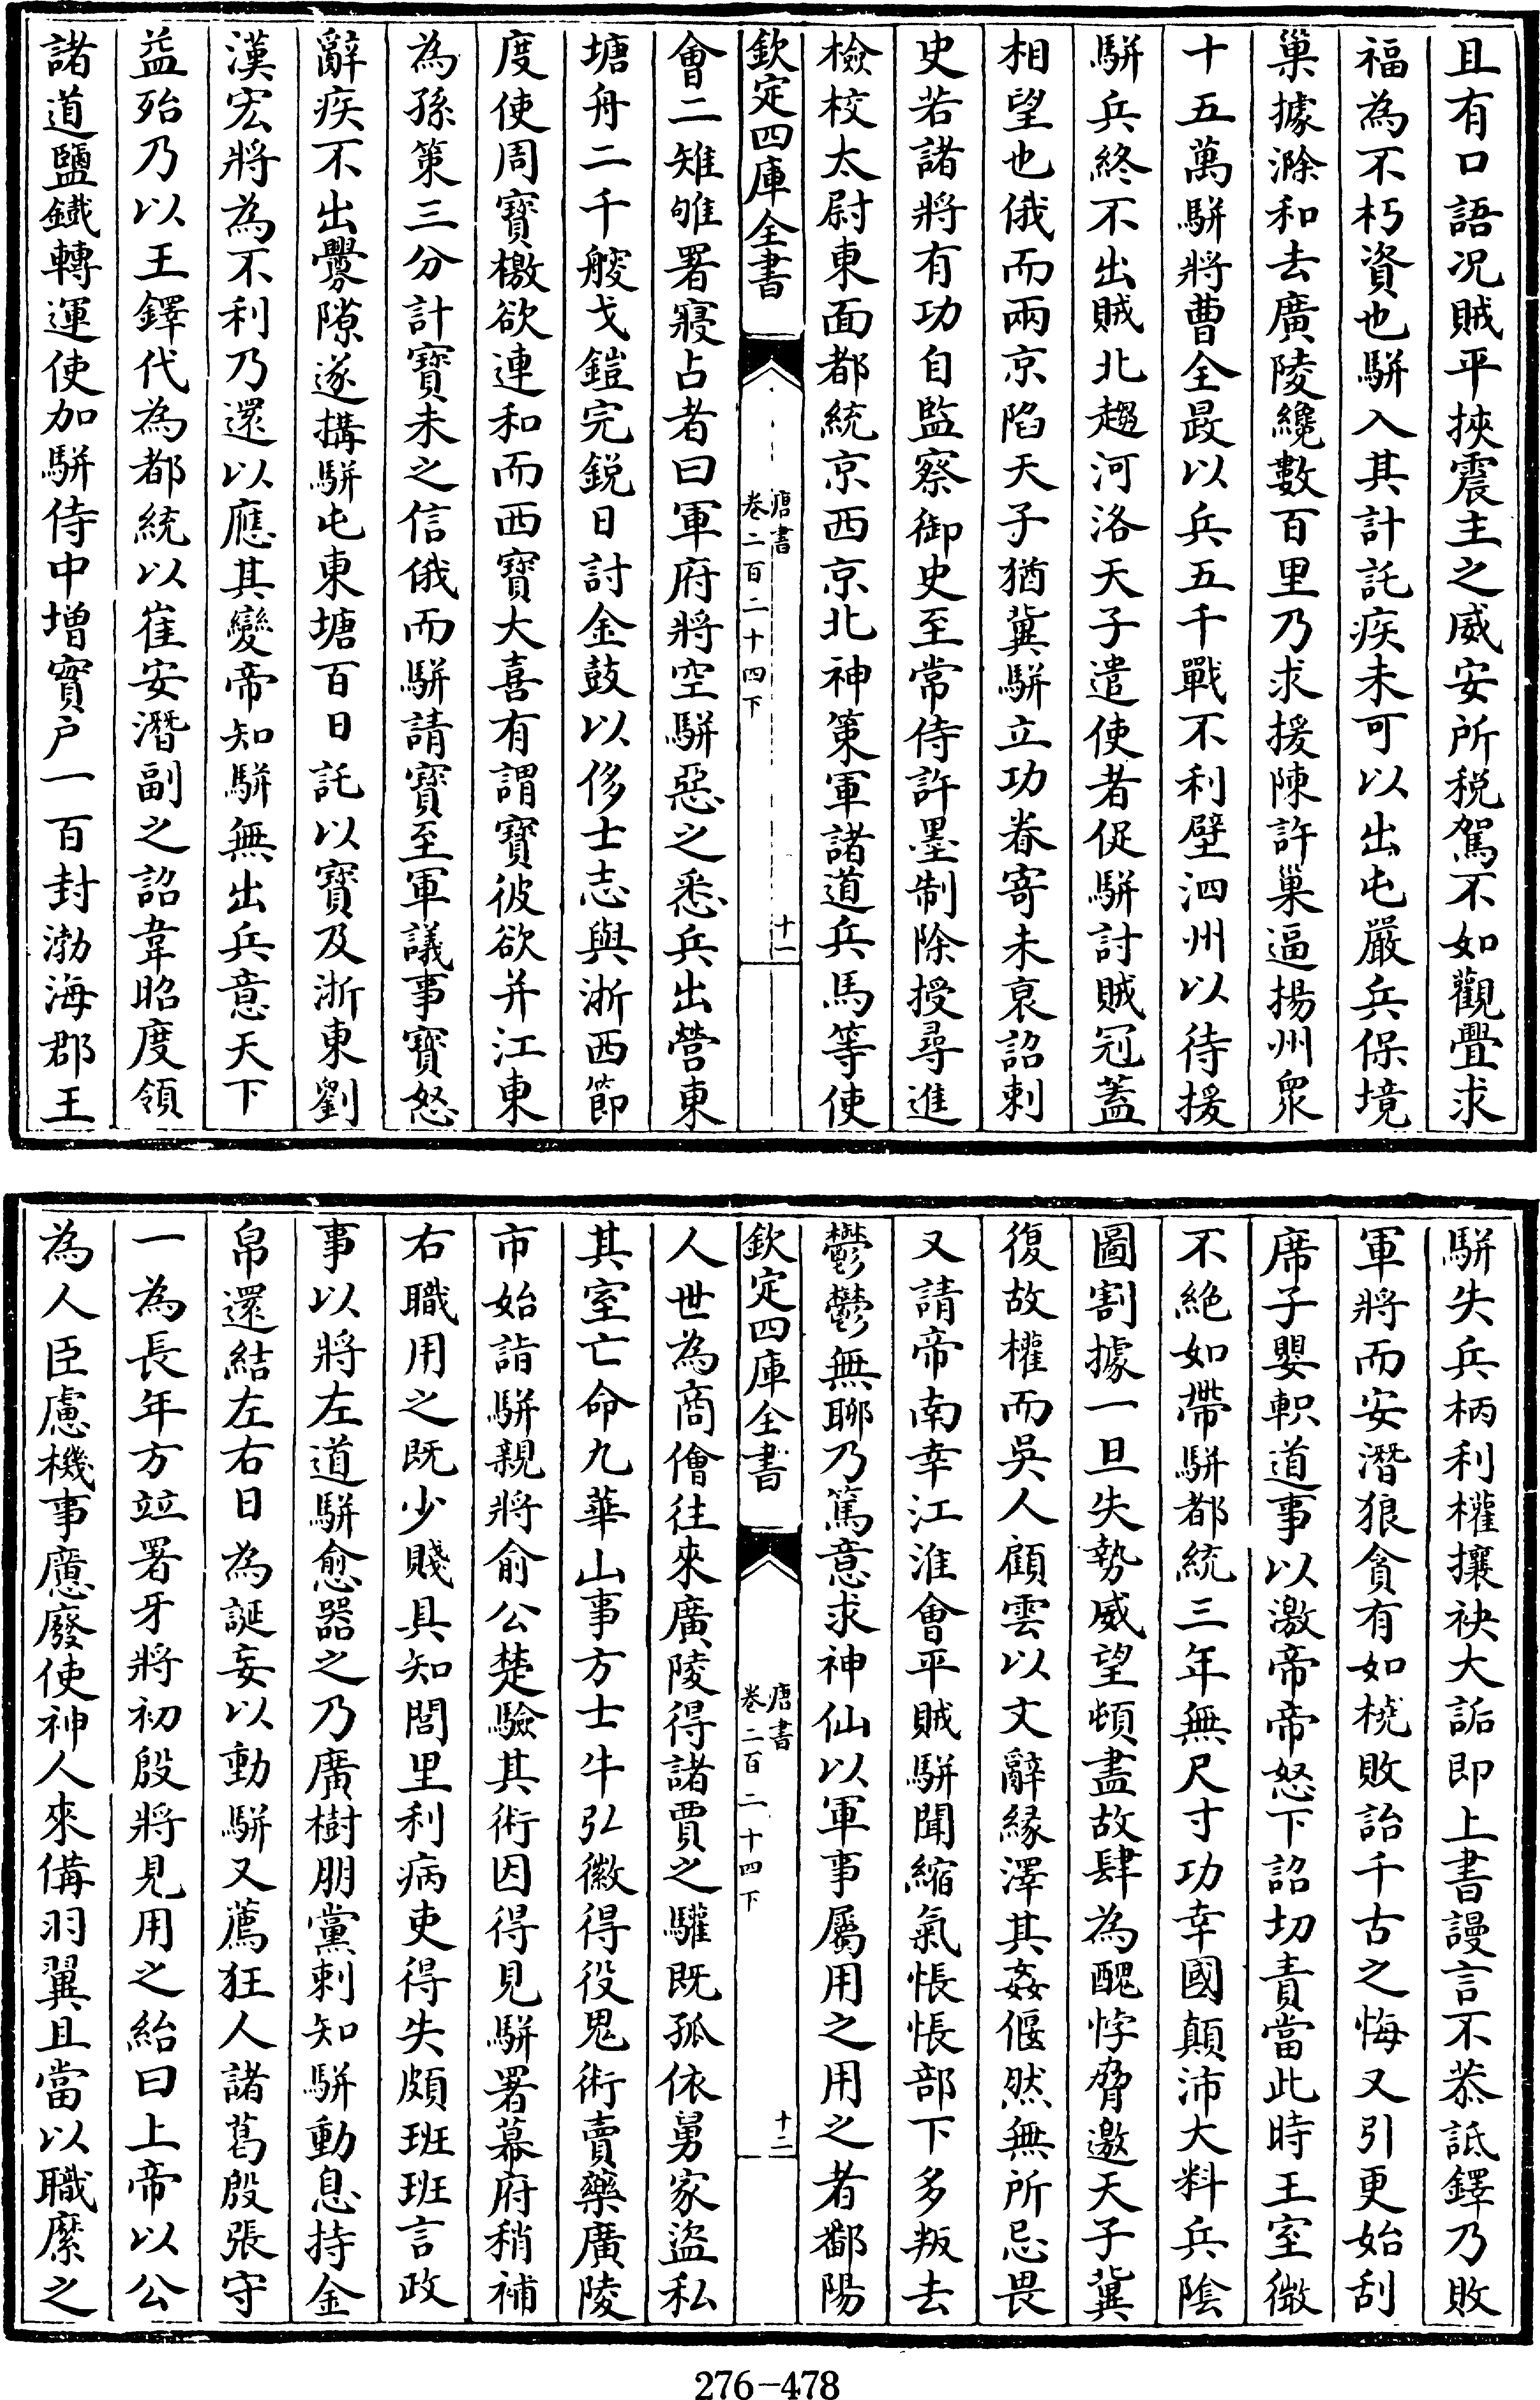 且有口語况賊平挾震主之威安所税駕不如觀釁求
福為不朽資也駢入其計託疾未可以出屯嚴兵保境
巢據滁和去廣陵纔數百里乃求援陳許巢逼揚州衆
十五萬駢將曹全晸以兵五千戰不利壁泗州以待援
駢兵終不出賊北趨河洛天子遣使者促駢討賊冠蓋
相望也俄而兩京陷天子猶冀駢立功眷寄未衰詔刺
史若諸將有功自監察御史至常侍許墨制除授尋進
檢校太尉東面都統京西京北神策軍諸道兵馬等使
欽定四庫全書
唐書
卷二百二十四下
十一
會二雉雊署寢占者曰軍府將空駢惡之悉兵出營東
塘舟二千艘戈鎧完鋭日討金鼓以侈士志與浙西節
度使周寶檄欲連和而西寶大喜有謂寶彼欲并江東
為孫策三分計寶未之信俄而駢請寶至軍議事寶怒
辭疾不出釁隙遂搆駢屯東塘百日託以寶及浙東劉
漢宏將為不利乃還以應其變帝知駢無出兵意天下
益殆乃以王鐸代為都統以崔安潛副之詔韋昭度領
諸道鹽鐵轉運使加駢侍中增實户一百封渤海郡王
駢失兵柄利權攘袂大詬即上書謾言不恭詆鐸乃敗
軍將而安潛狼貪有如橈敗詒千古之悔又引更始刮
席子嬰軹道事以激帝帝怒下詔切責當此時王室微
不絶如帶駢都統三年無尺寸功幸國顛沛大料兵陰
圖割據一旦失勢威望頓盡故肆為醜悖脅邀天子冀
復故權而吳人顧雲以文辭緣澤其姦偃然無所忌畏
又請帝南幸江淮會平賊駢聞縮氣悵悵部下多叛去
鬱鬱無聊乃篤意求神仙以軍事屬用之用之者鄱陽
欽定四庫全書
唐書
卷二百二十四下
十二
人世為商儈往來廣陵得諸賈之驩既孤依舅家盜私
其室亡命九華山事方士牛弘徽得役鬼術賣藥廣陵
市始詣駢親將俞公楚驗其術因得見駢署幕府稍補
右職用之既少賤具知閭里利病吏得失頗班班言政
事以將左道駢愈器之乃廣樹朋黨刺知駢動息持金
帛還結左右日為誕妄以動駢又薦狂人諸葛殷張守
一為長年方竝署牙將初殷將見用之紿曰上帝以公
為人臣慮機事廢使神人來備羽翼且當以職縻之
276-478